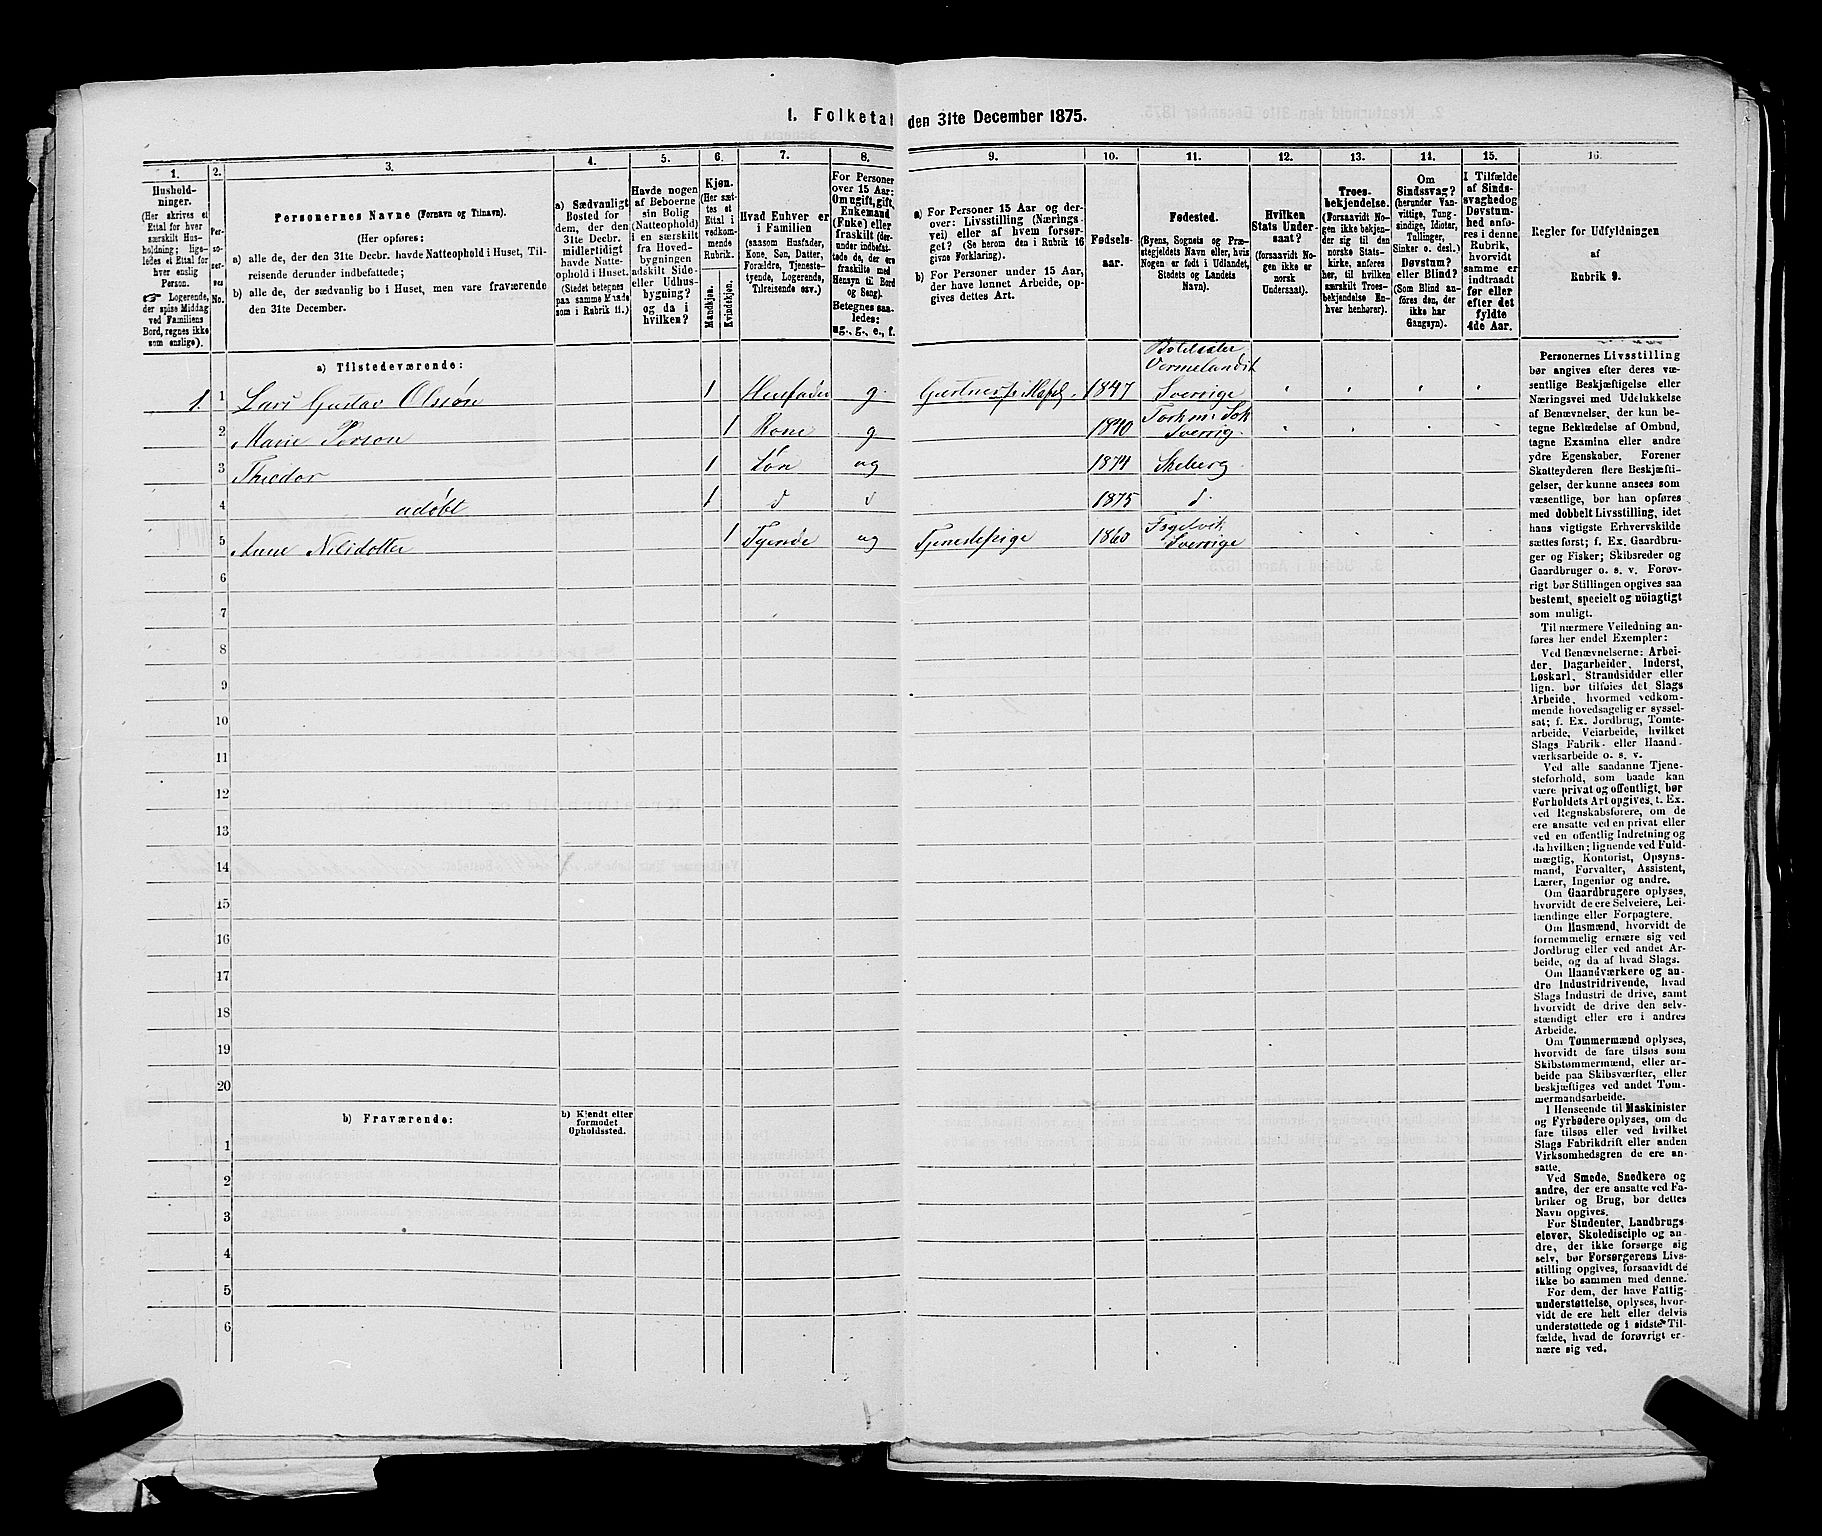 1. Folketal den 31te December 1875.
1.
2.
3.
4.
5.
6.
7.
8.
9.
10.
11.
12.
13.
14.
15.
16.
Hushold-
ninger.
(Her skrives et
Ettal for hver
særskilt Hus-
holdning; lige-
ledes et Ettal for
hver enslig
Person.
☞ Logerende,
der spise Middag
ved Familiens
Bord, regnes ikke
som enslige).
Per-
so-
ner-
nes
No.
Personernes Navne (Fornavn og Tilnavn).
(Her opføres:
a) alle de, der den 31te Decbr. havde Natteophold i Huset, Til-
reisende derunder indbefattede;
b) alle de, der sædvanlig bo i Huset, men vare fraværende
den 31te December.
a) Sædvanligt
Bosted for
dem, der den
31te Decbr.
midlertidigt
havde Natte-
ophold i Huset.
(Stedet betegnes
paa samme Maade
som i Rubrik 11.)
Havde nogen
af Beboerne
sin Bolig
(Natteophold)
i en særskilt
fra Hoved-
bygningen
adskilt Side-
eller Udhus-
bygning?
og da i
hvilken?
Kjøn.
(Her sæt-
tes et
Ettal i
vedkom-
mende
Rubrik.
Mandkjøn.
Kvindekjøn.
Hvad Enhver er
i Familien
(saasom Husfader,
Kone, Søn, Datter,
Forældre, Tjeneste-
tyende, Logerende,
Tilreisende osv.)
For Personer
over 15 Aar:
Om ugift, gift,
Enkemand
(Enke) eller
fraskilt (der-
under indbefat-
tede de, der ere
fraskilte med
Hensyn til Bord
og Seng).
Betegnes saa-
ledes:
ug., g., e., f.
a) For Personer 15 Aar og der-
over: Livsstilling (Nærings-
vei) eller af hvem forsør-
get? (Se herom den i Rubrik 16
givne Forklaring).
b) For Personer under 15 Aar,
der have lønnet Arbeide, op-
gives dettes Art.
Fødsels-
aar.
Fødested.
(Byens, Sognets og Præ-
stegjeldets Navn eller, hvis
Nogen er født i Udlandet,
Stedets og Landets
Navn).
Hvilken
Stats Under-
saat?
(forsaavidt No-
gen ikke er
norsk
Undersaat).
Troes-
bekjendelse.
(Forsaavidt No-
gen ikke bekjen-
der sig til den
norske Stats-
kirke, anføres
her, til hvilken
særskilt Troes-
bekjendelse En-
hver henhører).
Om
Sindssvag?
(herunder Van-
vittige, Tung-
sindige, Idioter,
Tullinger,
Sinker o. desl.)
Døvstum?
eller Blind?
(Som Blind an-
føres den, der
ikke har
Gangsyn).
I Tilfælde
af Sinds-
svaghed og
Døvstum-
hed anfø-
res i denne
Rubrik,
hvorvidt
samme er
indtraadt
før eller
efter det
fyldte
4de Aar.
Regler for Udfyldningen
af
Rubrik 9.
a) Tilstedeværende:
Vermelandsk
1. 1 Lars Gustav Olssøn 1 Husfader g. 1847 Sverrige
2 Marie Person 1 Kone g 1840 Sverrig.
3 Theodor 1 Søn ug 1874 Skeberg
4 udøbt 1 d d 1875 d.
5 Anne Nilsdotter 1 Tyende ug Tjenestepige 1860 Sverrige
6
7
8
9
10
11
12
13
14
15
16
17
18
19
20
b) Fraværende:
b) Kjendt eller
formodet
Opholdssted.
1
2
3
4
5
6
Personernes Livsstilling
bør angives efter deres væ-
sentlige Beskjæftigelse eller
Næringsvei med Udelukkelse
af Benævnelser, der kun be-
tegne Beklædelse af Ombud,
tagne Examina eller andre
ydre Egenskaber. Forener
Skatteyderen flere Beskjæfti-
gelser, der kunne ansees som
væsentlige, bør han opføres
med dobbelt Livsstilling, idet
hans vigtigste Erhvervskilde
sættes først; f. Ex. Gaardbru-
ger og Fisker; Skibsreder og
Gaardbruger o. s. v. Forøv-
rigt bør Stillingen opgives saa
bestemt, specielt og nöiagtigt
som muligt.
Til nærmere Veiledning an-
føres her endel Exempler:
Ved Benævnelserne: Arbei-
der, Dagarbeider, Inderst,
Løskarl, Strandsidder eller
lign. bør tilføies det Slags
Arbeide, hvormed vedkom-
mende hovedsagelig er syssel-
sat; f. Ex. Jordbrug, Tomte-
arbeide, Veiarbeide, hvilket
Slags Fabrik- eller Haand-
værksarbeide o. s. v.
Ved alle saadanne Tjene-
steforhold, som baade kan
være privat og offentligt, bør
Forholdets Art opgives, t. Ex.
ved Regnskabsførere, om de
ere ansatte ved en privat eller
ved en offentlig Indretning og
da hvilken; lignende ved Fuld-
mægtig, Kontorist, Opsyns-
mand, Forvalter, Assistent,
Lærer, Ingeniør og andre.
Om Gaardbrugere oplyses,
hvorvidt de ere Selveiere, Lei-
lændinge eller Forpagtere.
Om Husmænd, hvorvidt de
fornemmelig ernære sig ved
Jordbrug eller ved andet Ar-
beide, og da af hvad Slags.
Om Haandværkere og an-
dre Industridrivende, hvad
Slags Industri de drive, samt
hvorvidt de drive den selv-
stændigt eller ere i andres
Arbeide.
Om Tømmermænd oplyses,
hvorvidt de fare tilsøs som
Skibstømmermænd, eller ar-
beide paa Skibsværfter, eller
beskjæftiges ved andet Tøm-
mermandsarbeide.
I Henseende til Maskinister
og Fyrbødere oplyses, om de
fare tilsøs eller ved hvilket
Slags Fabrikdrift eller anden
Virksomhedsgren de ere an-
satte.
Ved Smede, Snedkere og
andre, der ere ansatte ved Fa-
briker og Brug, bør dettes
Navn opgives.
For Studenter, Landbrugs
elever, Skoledisciple og an-
dre, der ikke forsørge sig
selv, bør Forsørgerens Livs-
stilling opgives, forsaavidt de
ikke bo sammen med denne.
For dem, der have Fattig-
understøttelse, oplyses, hvor-
vidt de ere helt eller delvis
understøttede og i sidste Til-
fælde, hvad de forøvrigt er-
nære sig ved.